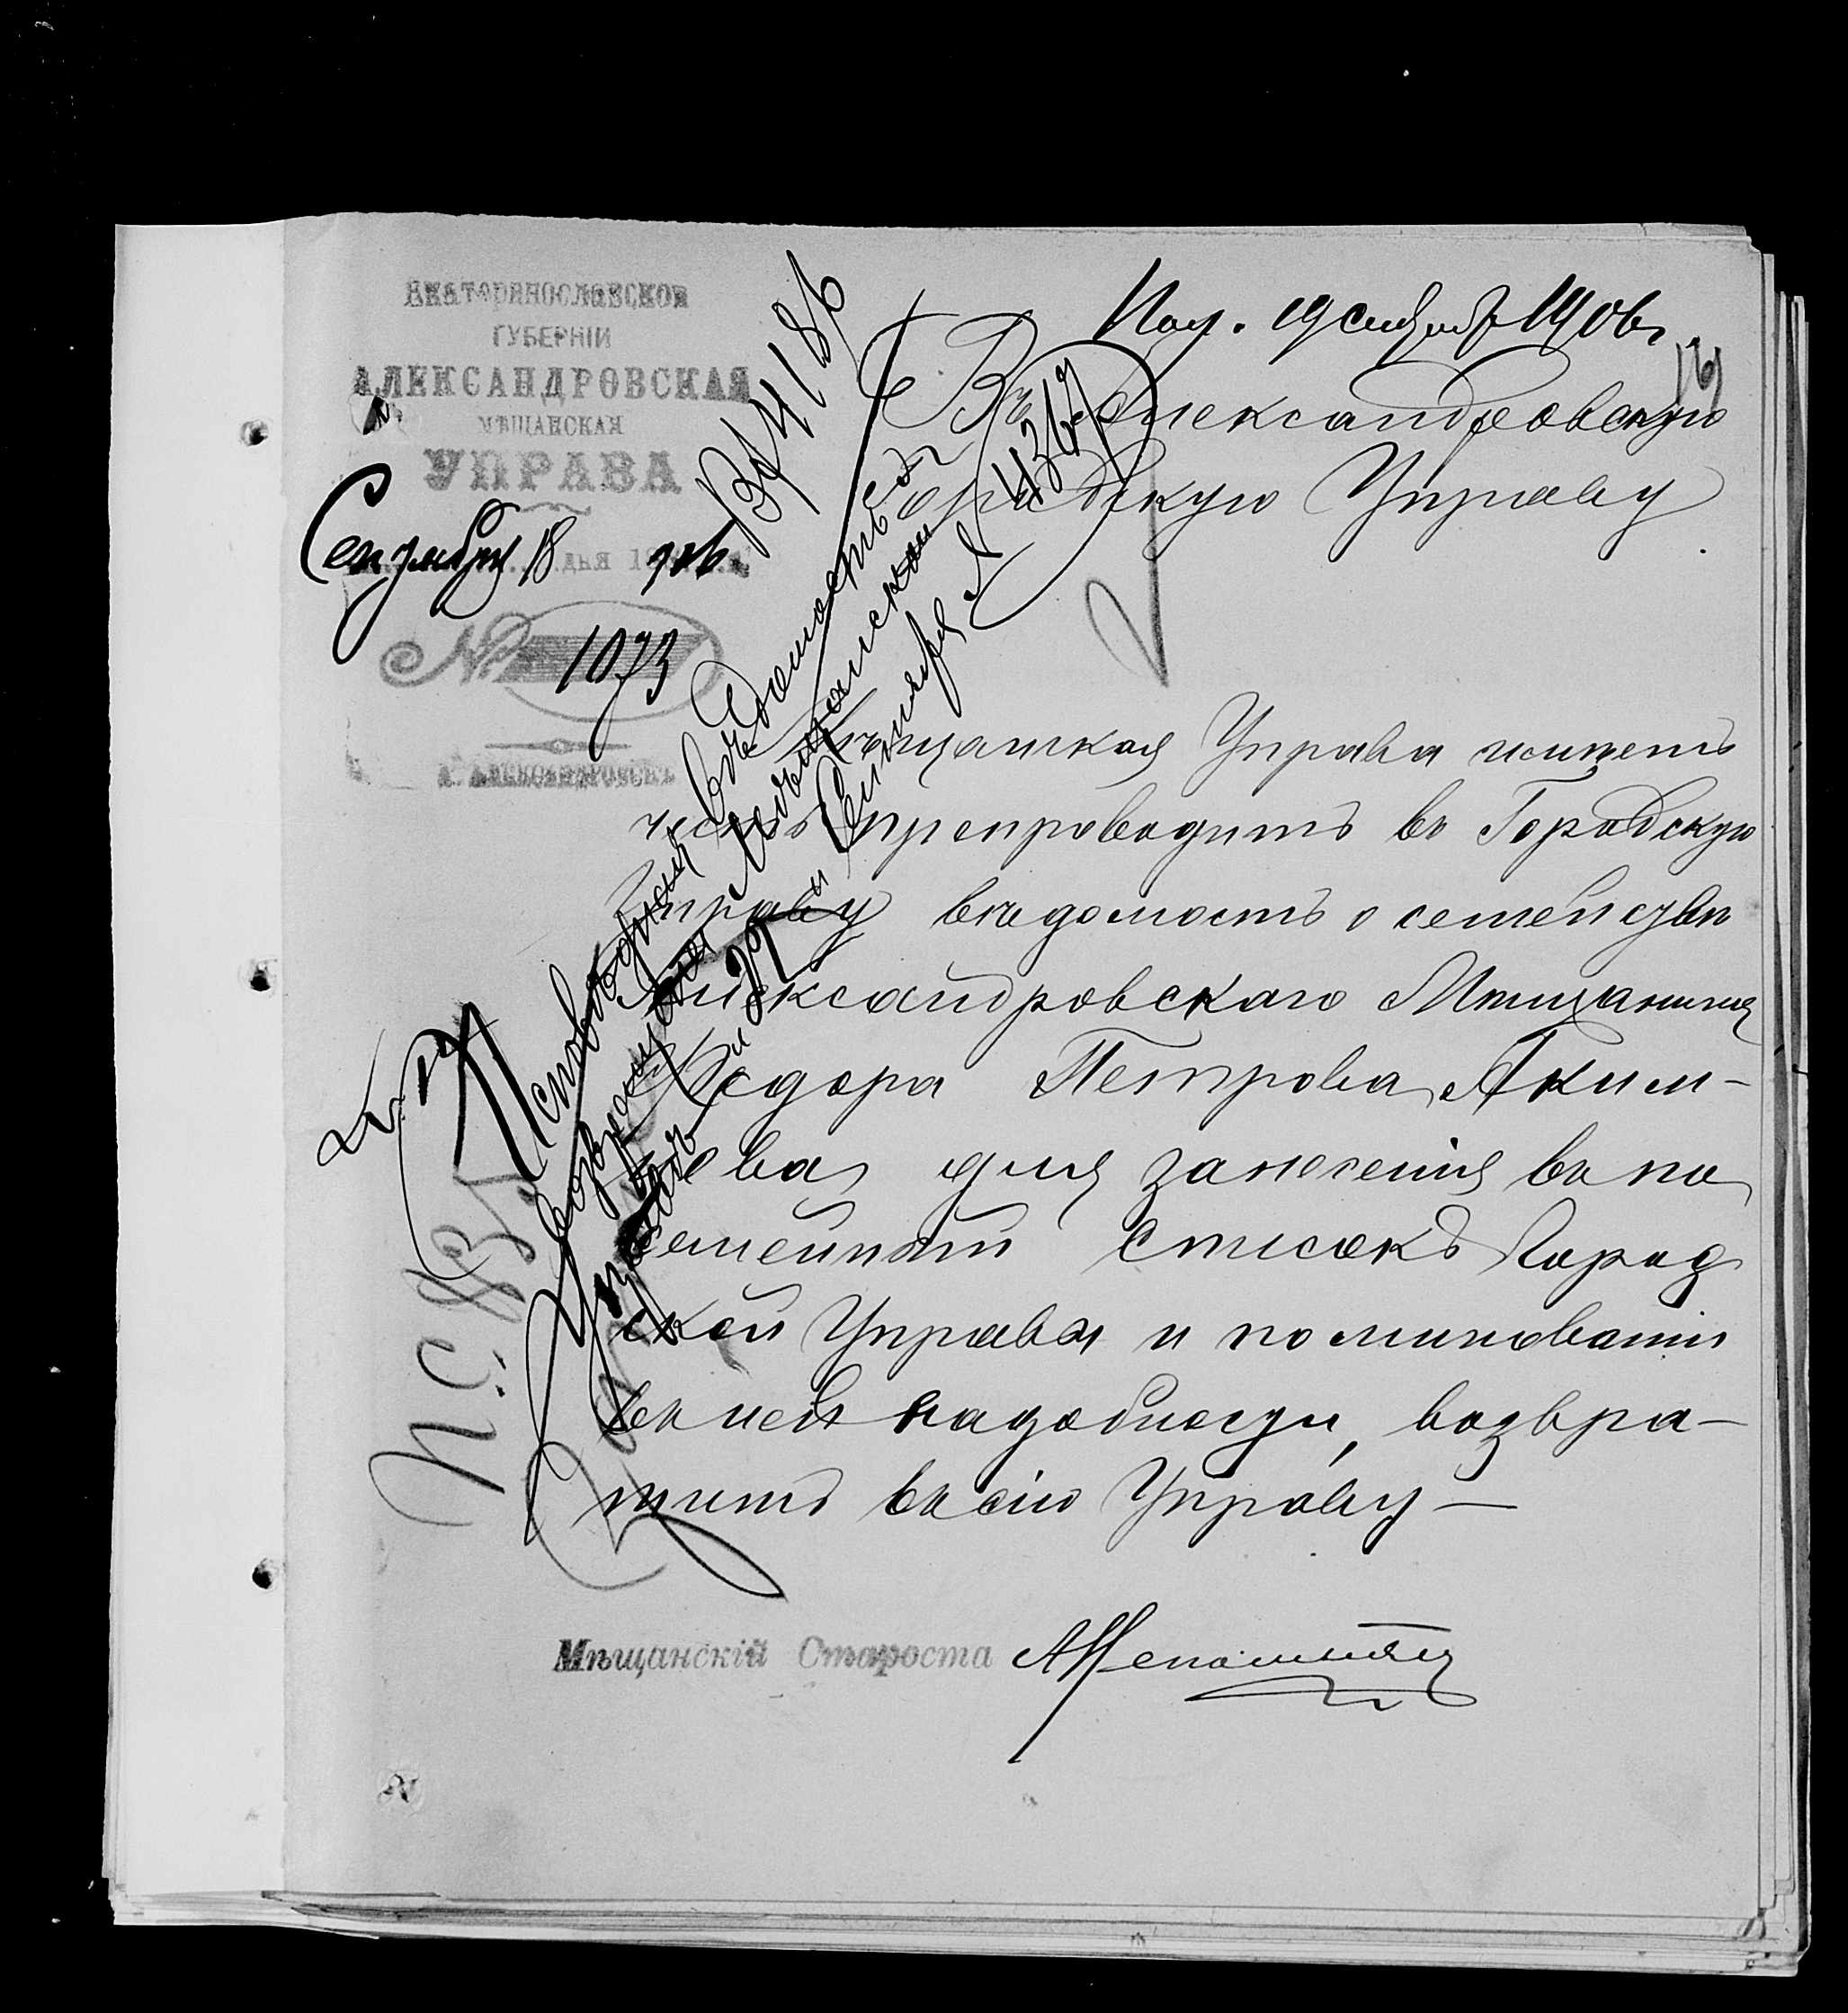 ЕКАТЕРИНОСЛАВСКОЙ
ГУБЕРНІИ
АЛЕКСАНДРОВСКАЯ
МѢЩАНСКАЯ
УПРАВА
Сентября 18 дня 1906
№ 1073
Г. АЛЕКСАНДРОВСКЪ
Пол. 19 сентября 1906 г.
В 4186
Въ Александровскую
Городскую Управу
Мѣщанская Управа имѣетъ
честь препроводить въ Городскую
Управу вѣдомость о семействѣ
Александровскаго Мѣщанина
Федора Петрова Аким-
ова для занесенія въ по
семейный списокъ Город
ской Управы и по миновании
въ ней надобности, возвра-
тить въ сію Управу —
Мѣщанскій Староста
вѣдомость
возвращена Мѣщанской
Управѣ при Сентября № 4367